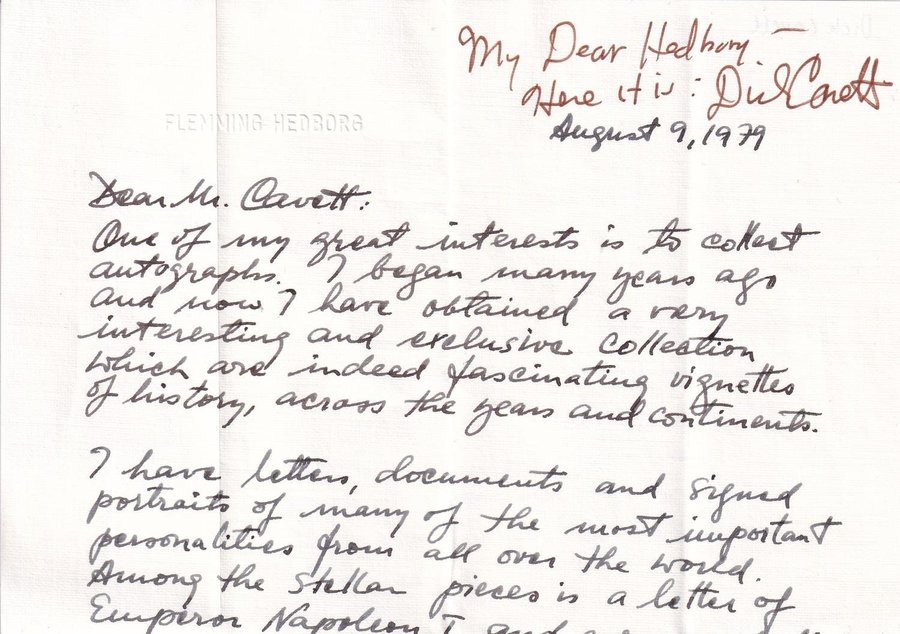 My Dear Hedborg —
Here it is: Dick Cavett
August 9, 1979
FLEMMING HEDBORG
Dear Mr. Cavett:
One of my great interests is to collect
autographs. I began many years ago
and now I have obtained a very
interesting and exclusive collection
which are indeed fascinating vignettes
of history, across the years and continents.
I have letters, documents and signed
portraits of many of the most important
personalities from all over the world.
Among the stellar pieces is a letter of
Emperor Napoleon I and